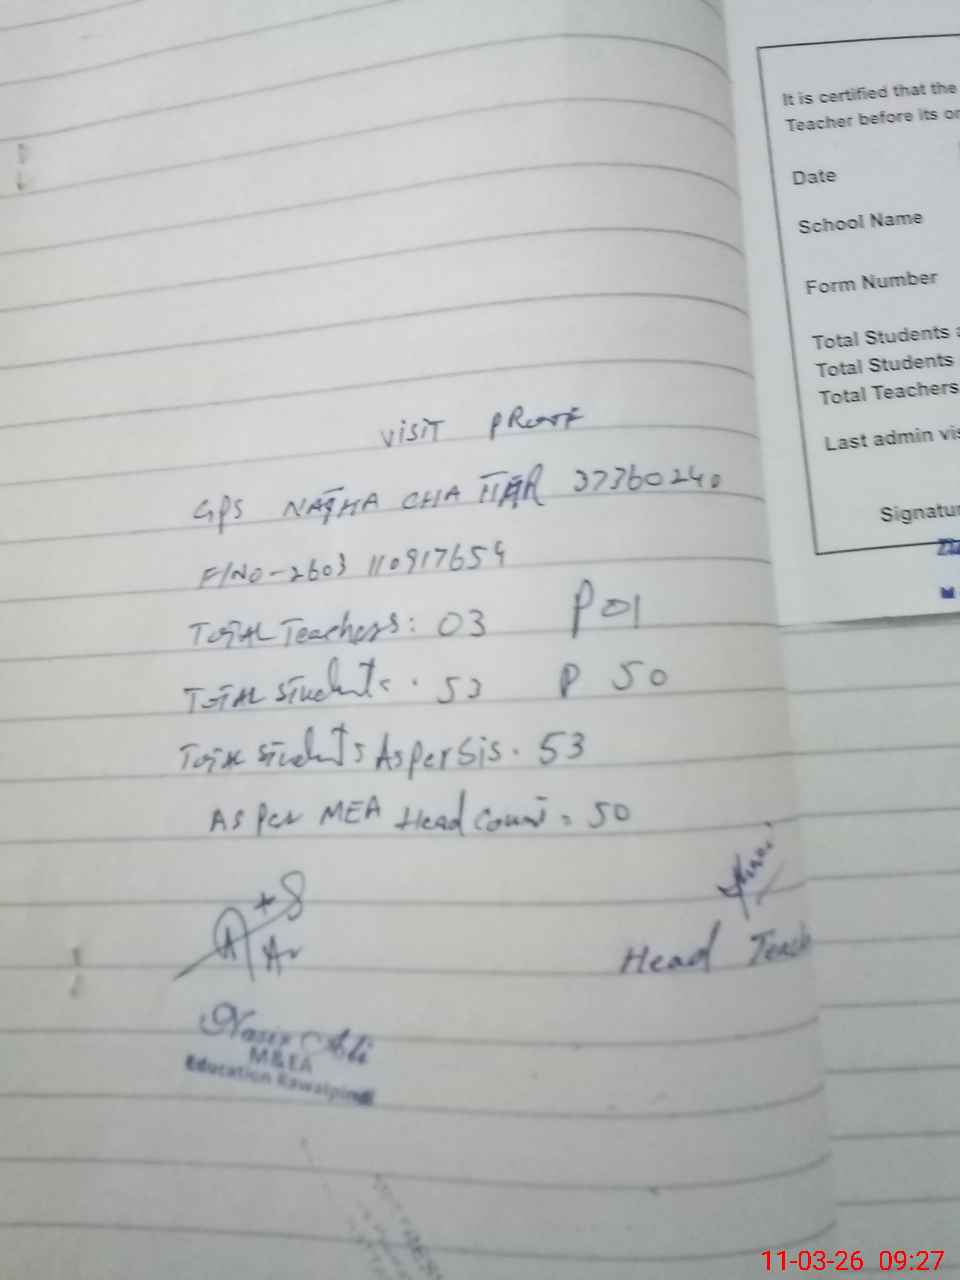 It is certified that the
Teacher before its
Date
School Name
Form Number
Total Students
Total Students
Total Teachers
Last admin
VISIT PROOF
GPS NATHA CHATTAR 37360240
F/NO-2603 110917654
TOTAL Teachers: 03 P 01
TOTAL Students. 53 P 50
Total Students As per Sis. 53
As Per MEA Head Count = 50
Head Teach
Nasir Ali
M&EA
Education Rawalpindi
11-03-26 09:27